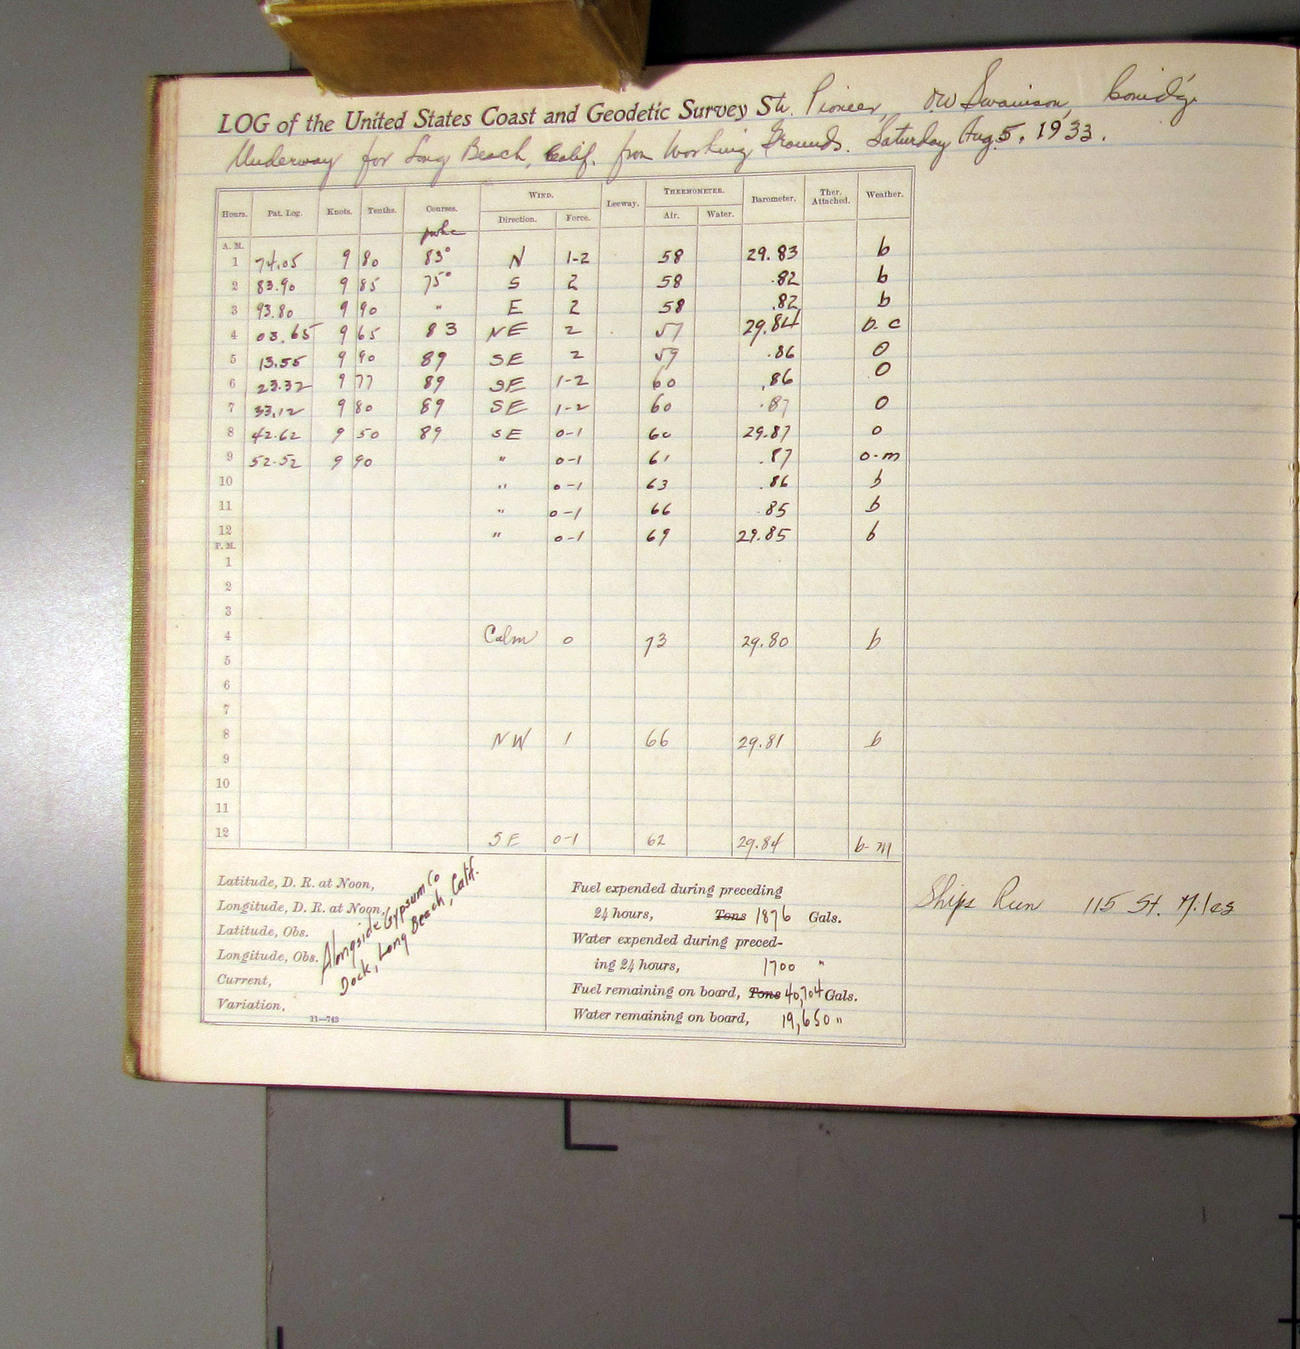 LOG of the United States Coast and Geodetic Survey Str. Pioneer, OW Swainson, Comd'g.
Underway for Long Beach, Calif. from Working Grounds. Saturday Aug. 5, 1933.
Hours. Pat. Log. Knots. Tenths. Courses. WIND. Leeway. THERMOMETER. Barometer. Ther. Attached. Weather.
Direction. Force. Air. Water.
A. M.
1 74.05 9 80 83° N 1-2 58 29.83 b
2 83.90 9 85 75° S 2 58 .82 b
3 93.80 9 90 " E 2 58 .82 b
4 03.65 9 65 83 NE 2 57 29.84 b.c
5 13.55 9 90 89 SE 2 59 .86 O
6 23.32 9 77 89 SE 1-2 60 .86 O
7 33.12 9 80 89 SE 1-2 60 .87 O
8 42.62 9 50 89 SE 0-1 60 29.87 o
9 52.52 9 90 " 0-1 61 .87 o-m
10 " 0-1 63 .86 b
11 " 0-1 66 .85 b
12 " 0-1 69 29.85 b
P. M.
1
2
3
4 Calm 0 73 29.80 b
5
6
7
8 NW 1 66 29.81 b
9
10
11
12 SE 0-1 62 29.84 b-m
Latitude, D. R. at Noon,
Longitude, D. R. at Noon,
Latitude, Obs.
Longitude, Obs.
Current,
Variation,
Alongside Gypsum Co
Dock, Long Beach, Calif.
11—743
Fuel expended during preceding
24 hours, Tons 1876 Gals.
Water expended during preced-
ing 24 hours, 1700 "
Fuel remaining on board, Tons 40,704 Gals.
Water remaining on board, 19,650 "
Ships Run 115 St. Miles